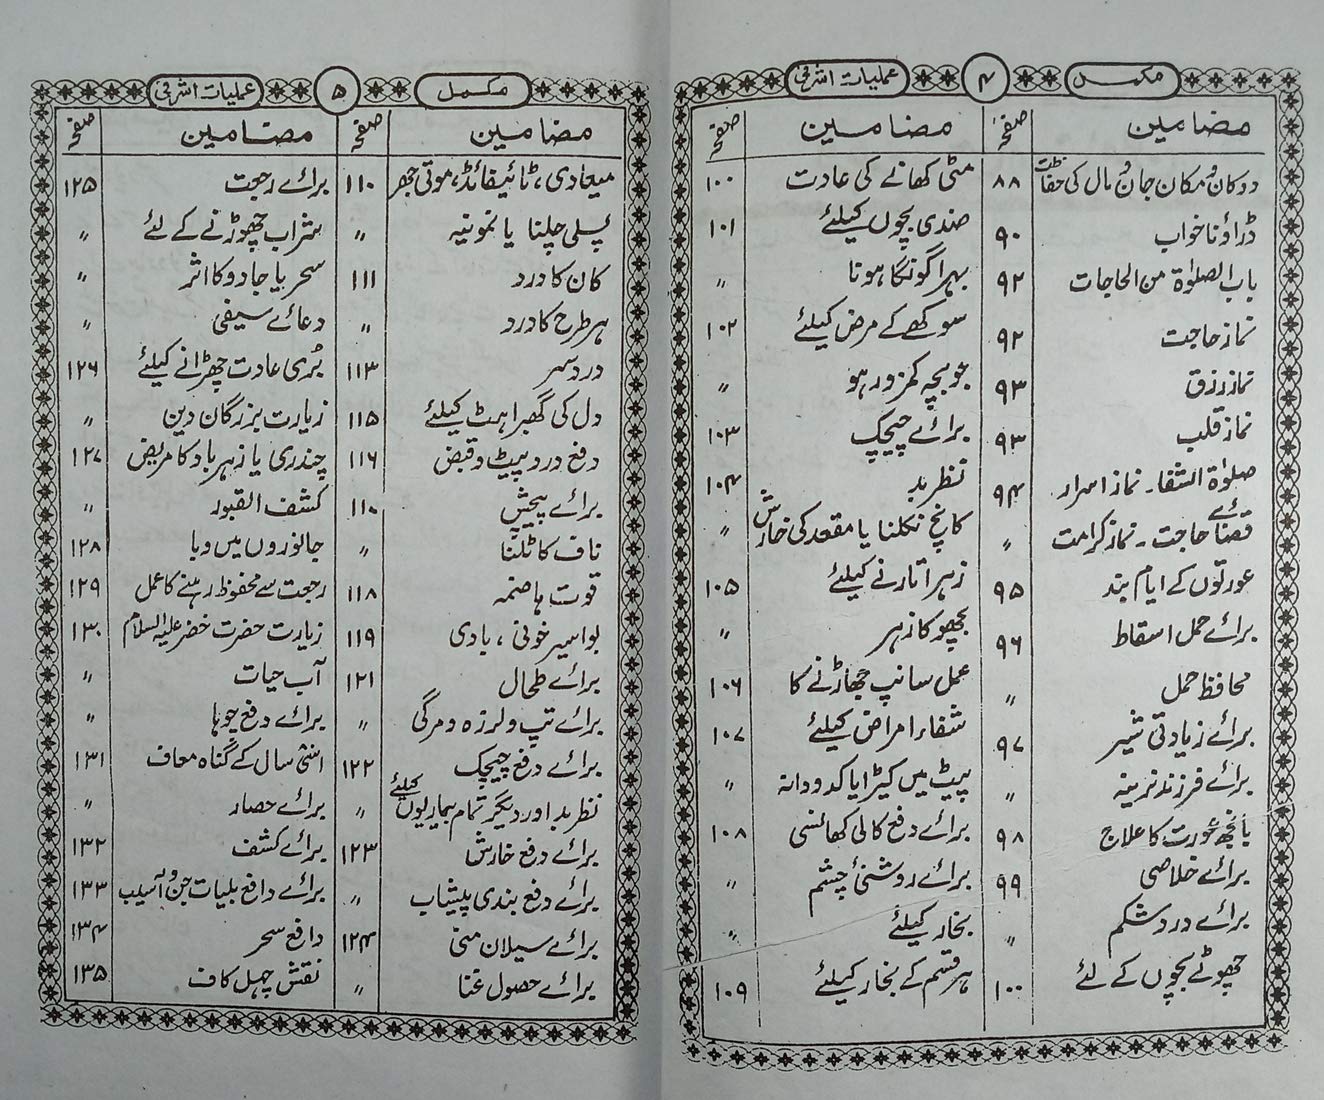 مکمل ۴ عملیات اشرفی
مضامین صفحہ مضامین صفحہ
دوکان مکان جان مال کی حفاظت ۸۸ مٹی کھانے کی عادت ۱۰۰
ڈراؤنا خواب ۹۰ ضدی بچوں کیلئے ۱۰۱
باب الصلوٰۃ من الحاجات ۹۲ بہرا گونگا ہونا 〃
نماز حاجت ۹۲ سوکھے کے مرض کیلئے ۱۰۲
نماز رزق ۹۳ جو بچہ کمزور ہو 〃
نماز قلب ۹۳ برائے چیچک ۱۰۳
صلوٰۃ الشفا۔ نماز اسرار ۹۴ نظر بد ۱۰۴
قضائے حاجت۔ نماز کرامت 〃 کانچ نکلنا یا مقعد کی خارش 〃
عورتوں کے ایام بند ۹۵ زہر اتارنے کیلئے ۱۰۵
برائے حمل اسقاط ۹۶ بچھو کا زہر 〃
محافظ حمل 〃 عمل سانپ جھاڑنے کا ۱۰۶
برائے زیادتی شیر ۹۷ شفاء امراض کیلئے ۱۰۷
برائے فرزند نرینہ 〃 پیٹ میں کیڑا یا کدو دانہ 〃
بانجھ عورت کا علاج ۹۸ برائے دفع کالی کھانسی ۱۰۸
برائے خلاصی ۹۹ برائے روشنئ چشم 〃
برائے درد شکم 〃 بخار کیلئے 〃
چھوٹے بچوں کے لئے ۱۰۰ ہر قسم کے بخار کیلئے ۱۰۹
مکمل ۵ عملیات اشرفی
مضامین صفحہ مضامین صفحہ
میعادی، ٹائیفائڈ، موتی جھر ۱۱۰ برائے رجعت ۱۲۵
پسلی چلنا یا نمونیہ 〃 شراب چھوڑنے کے لئے 〃
کان کا درد ۱۱۱ سحر یا جادو کا اثر 〃
ہر طرح کا درد 〃 دعائے سیفی 〃
درد سر ۱۱۳ بُری عادت چھڑانے کیلئے ۱۲۶
دل کی گھبراہٹ کیلئے ۱۱۵ زیارت بزرگان دین 〃
دفع درد پیٹ و قبض ۱۱۶ چندری یا زہر باد کا مریض ۱۲۷
برائے پیچش ۱۱۰ کشف القبور 〃
ناف کا ٹلنا 〃 جانوروں میں وبا ۱۲۸
قوت ہاضمہ ۱۱۸ رجعت سے محفوظ رہنے کا عمل ۱۲۹
بواسیر خونی، بادی ۱۱۹ زیارت حضرت خضر علیہ السلام ۱۳۰
برائے طحال ۱۲۱ آب حیات 〃
برائے تپ و لرزہ و مرگی 〃 برائے دفع چوہا 〃
برائے دفع چیچک ۱۲۲ اسّی سال کے گناہ معاف ۱۳۱
نظر بد اور دیگر تمام بیماریوں کیلئے 〃 برائے حصار 〃
برائے دفع خارش ۱۲۳ برائے کشف ۱۳۲
برائے دفع بندی پیشاب 〃 برائے دافع بلیات جن و آسیب ۱۳۳
برائے سیلان منی ۱۲۴ دافع سحر ۱۳۴
برائے حصول غنا 〃 نقش چہل کاف ۱۳۵